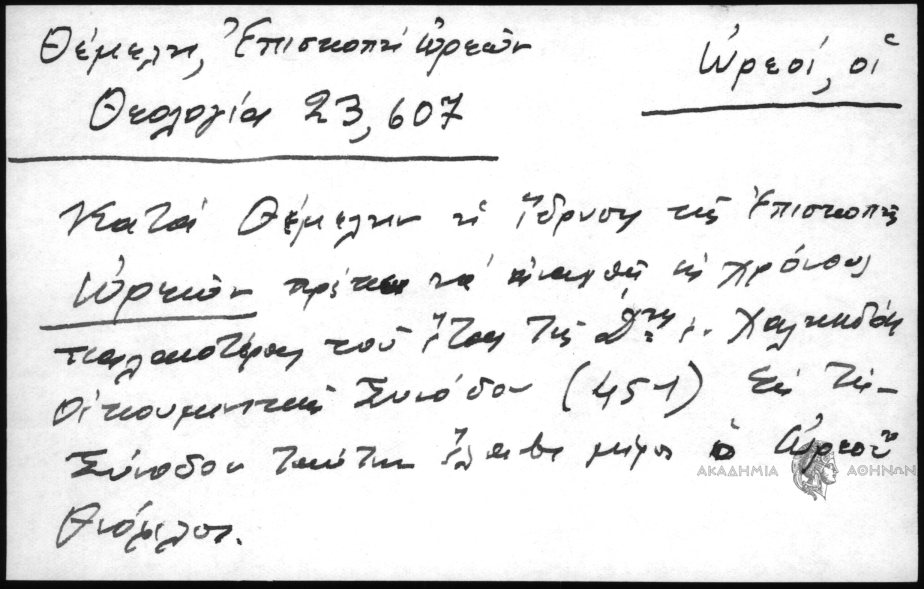 Θέμελη, Ἐπισκοπή Ὠρεῶν
Ὠρεοί, οἱ
Θεολογία 23, 607
Κατά Θέμελην ἡ ἵδρυση τῆς Ἐπισκοπῆς
Ὠρεῶν πρέπει νά ἀναχθῆ εἰς χρόνους
παλαιοτέρους τοῦ ἔτους τῆς Δ΄ ἐν Χαλκηδόνι
Οἰκουμενικῆς Συνόδου (451) Εἰς τήν
Σύνοδον ταύτην ἔλαβε μέρος ὁ Ὠρεοῦ
Θεόφιλος.
ΑΚΑΔΗΜΙΑ ΑΘΗΝΩΝ